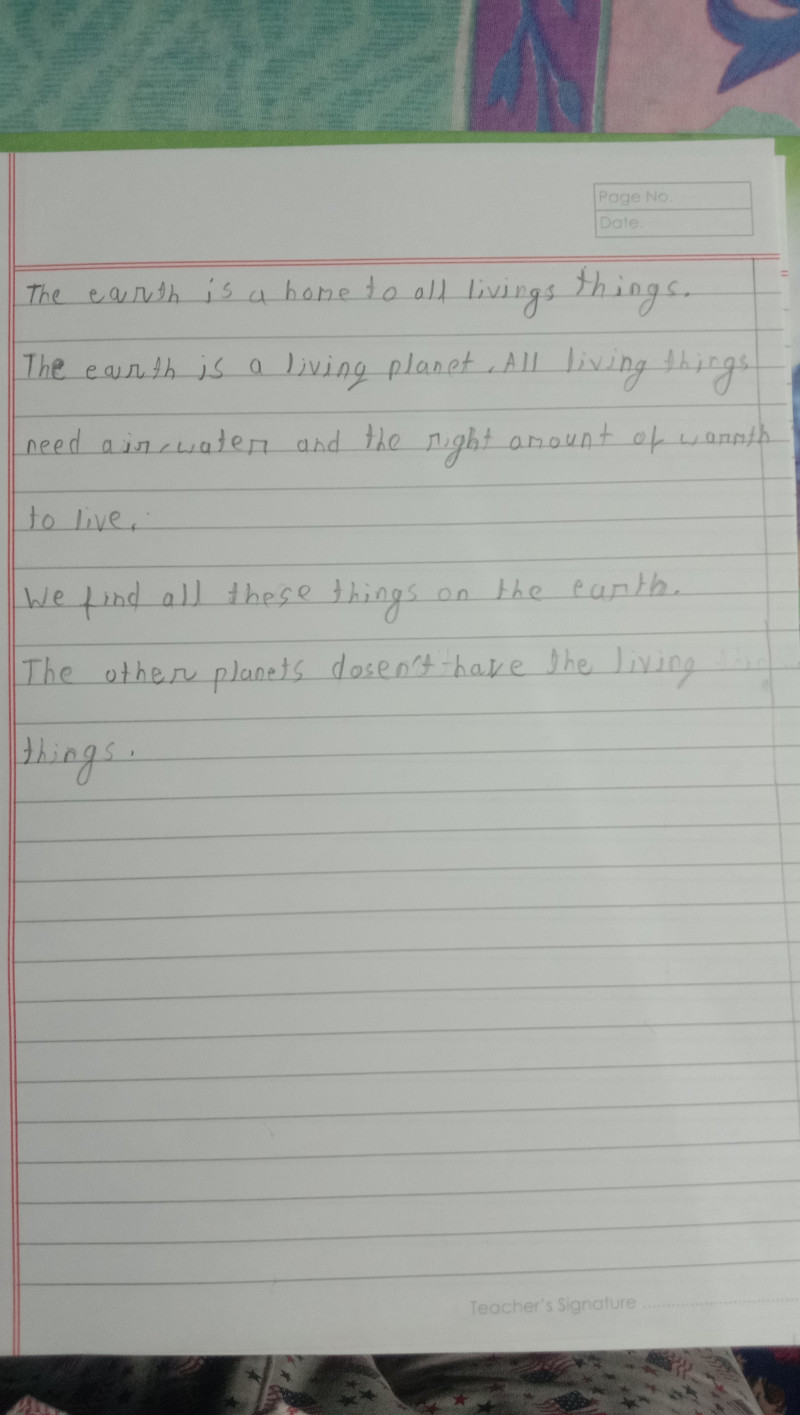 Page No.
Date.
The earth is a home to all livings things.
The earth is a living planet. All living things
need air, water and the right amount of warmth
to live.
We find all these things on the earth.
The other planets dosen't have the living
things.
Teacher's Signature